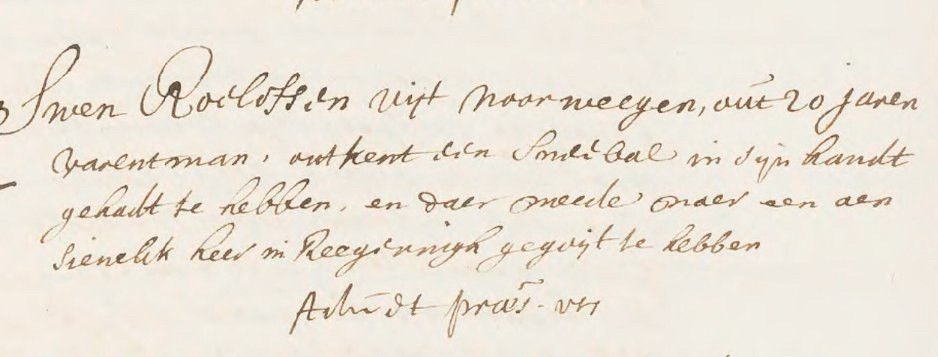 Swen Roelofsen uijt Noorweegen, out 20 jaren
varentman, ontkent een Sneebal in sijn handt
gehadt te hebben, en daer meede naer een aen
sienelik heer in Reegeringh gegoijt te hebben
Actu̅ dt praes. utt